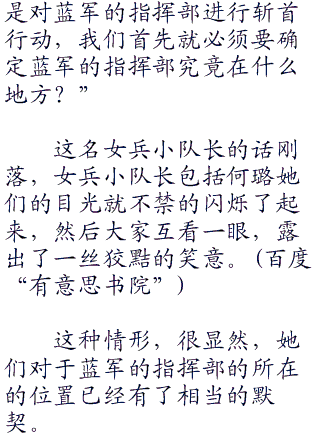 是对蓝军的指挥部进行斩首
行动，我们首先就必须要确
定蓝军的指挥部究竟在什么
地方？”
这名女兵小队长的话刚
落，女兵小队长包括何璐她
们的目光就不禁的闪烁了起
来，然后大家互看一眼，露
出了一丝狡黠的笑意。(百度
“有意思书院”)
这种情形，很显然，她
们对于蓝军的指挥部的所在
的位置已经有了相当的默
契。